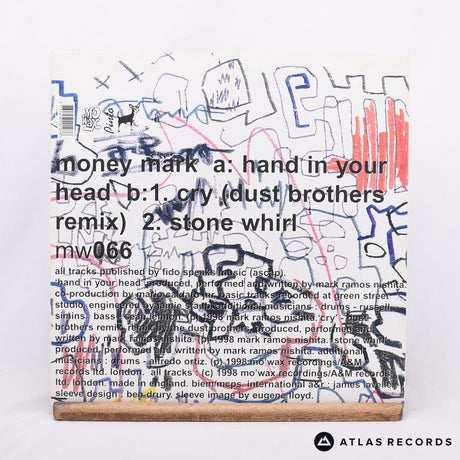 money mark a: hand in your
head b:1. cry (dust brothers
remix) 2: stone whirl
mw066
all tracks published by fido speaks music (ascap).
hand in your head produced, performed and written by mark ramos nishita.
co-production by mario caldato jnr. basic tracks recorded at green street
studio, engineered by jamie staub. additional musicians : drums - russell
simins, bass - sean 1998 mark ramos nishita. cry dust
brothers remix produced, performed
written 1998 mark ramos stone whirl
produced, performed written by mark ramos additional
musicians : drums - alfredo ortiz. (p) 1998 mo'wax recordings/A&M
records ltd. london. all tracks © 1998 mo'wax recordings/A&M records
ltd. london. international a&r : james lavelle.
sleeve design : ben drury. sleeve image by eugene lloyd.
ATLAS RECORDS